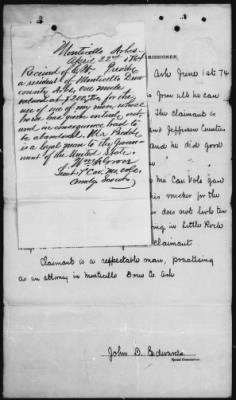 Monticello Arks
April 22nd 1864
Received of C. H.
a resident of Monticello Drew
county Arks, one mule
valued at $200.00 for the
use of one of my men, whose
horse has given entirely out
and in consequence had to
be abandoned. Mr
is a loyal man to the Govern-
ment of the United States.
Wm
Lieut
Comdg Scouts
MMISSIONER,
Ark June 1st 74
he can
The Claimant is
and Jefferson Counties
and he did good
Mr Can Vols Gave
his voucher for the
does not live ten
ing in little Rock
Claimant
Claimant is a respectable man, practising
as an attorney in Monticello Drew Co. Ark
John D. Edwards
Special Commissioner.